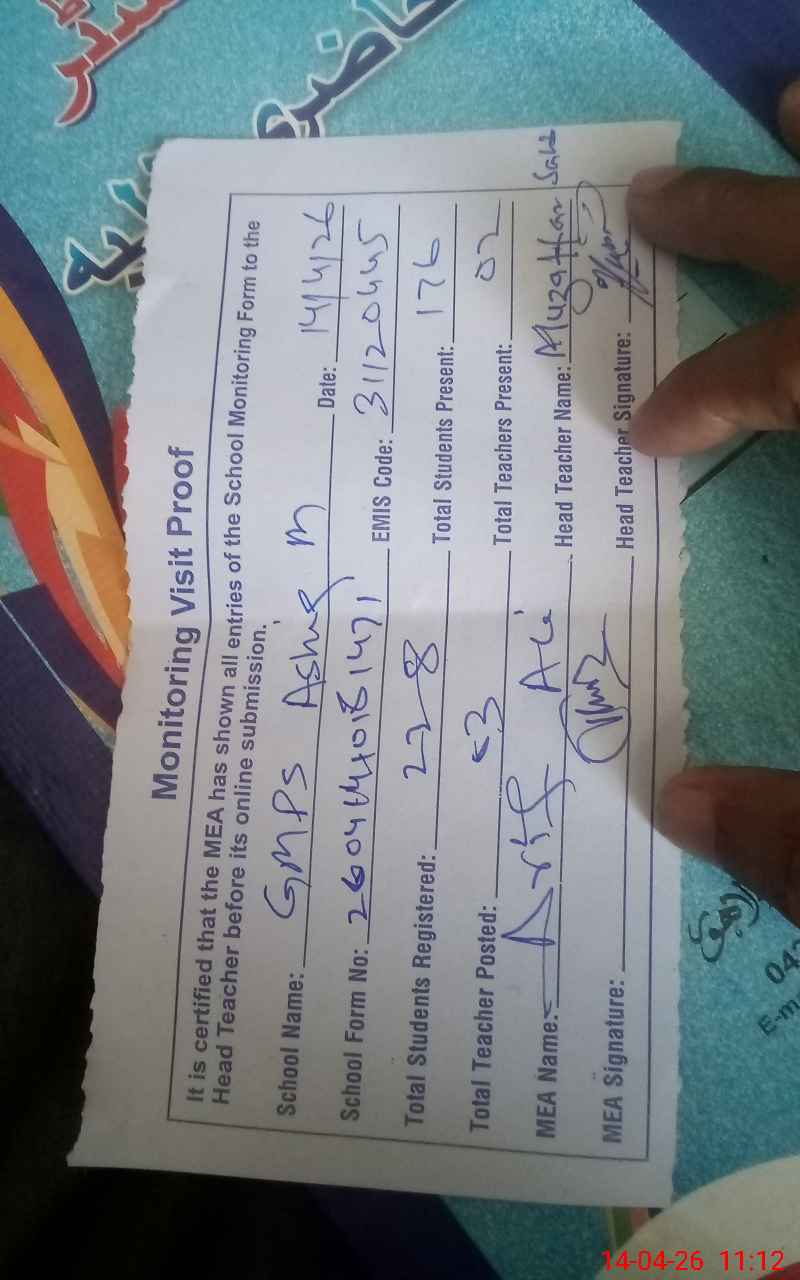 حاضری
Monitoring Visit Proof
It is certified that the MEA has shown all entries of the School Monitoring Form to the
Head Teacher before its online submission.
School Name: GMPS Ashraf M Date: 14/4/26
School Form No: EMIS Code: 31120445
Total Students Registered: 228 Total Students Present: 176
Total Teacher Posted: 03 Total Teachers Present: 02
MEA Name: Arif Ali Head Teacher Name: Muzaffar
MEA Signature: Head Teacher Signature:
14-04-26 11:12